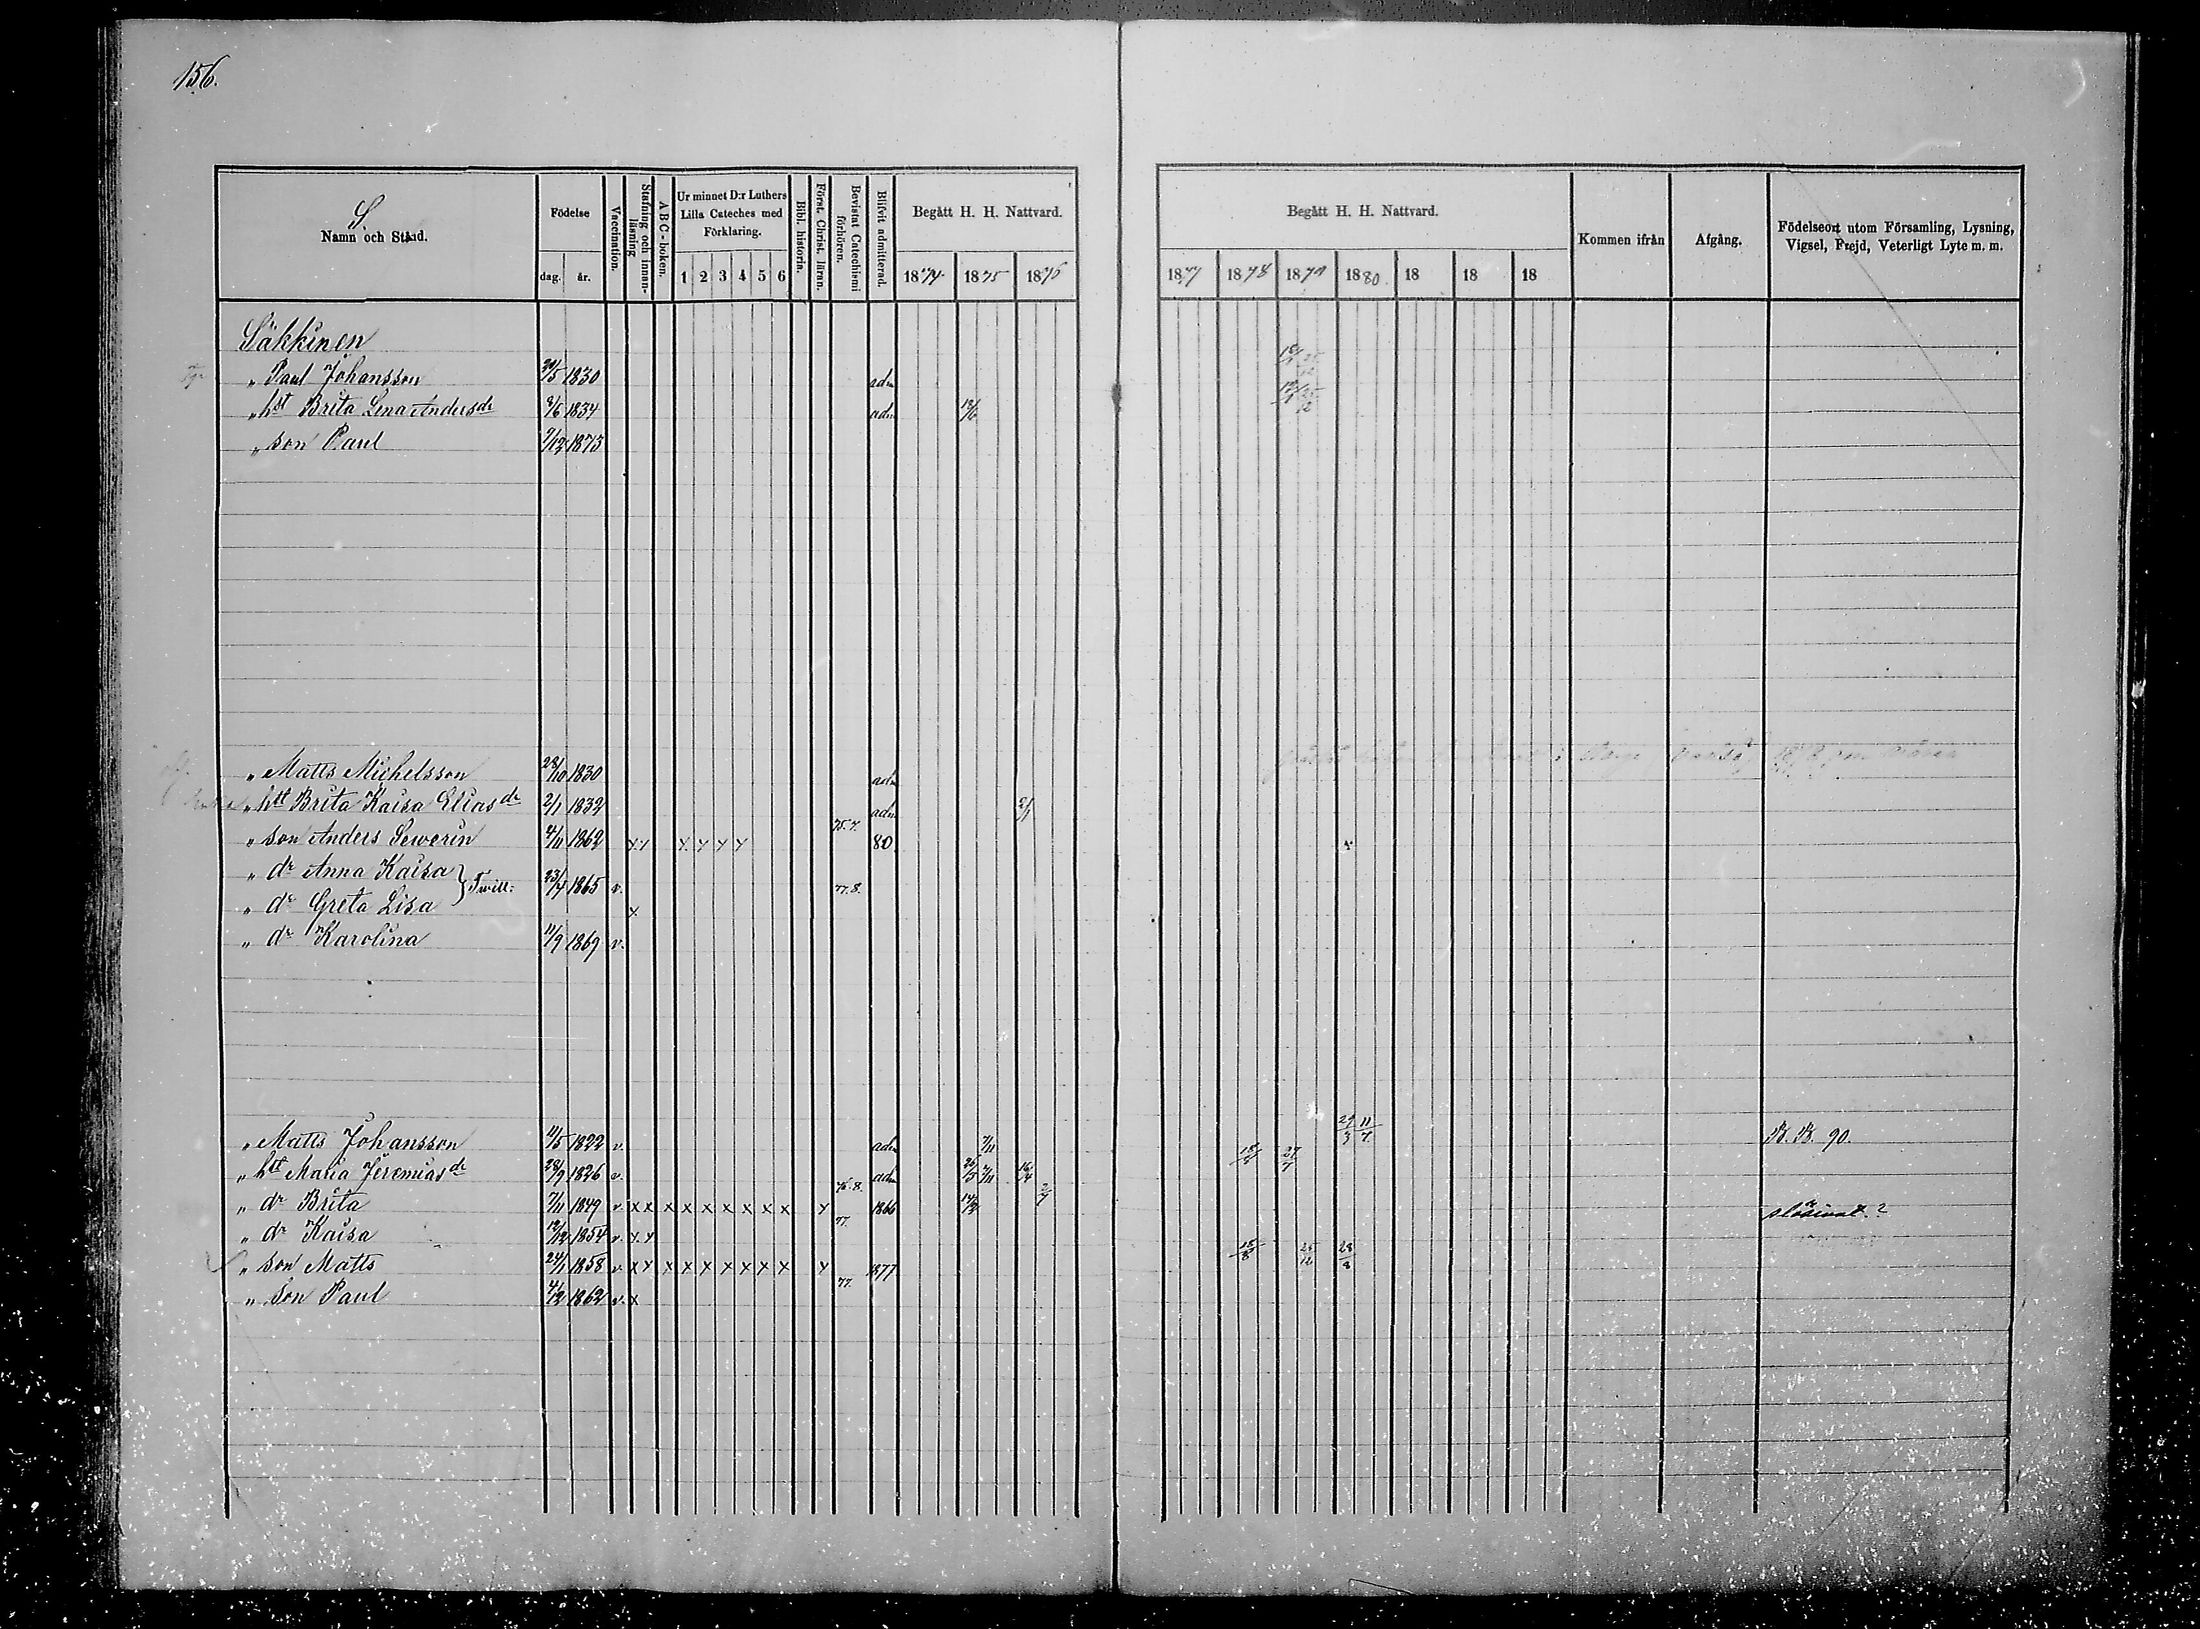 156.
S.
Namn och Stånd.
Födelse
dag. år.
Vaccination.
Stafning och innanläsning
ABC-boken.
Ur minnet D:r Luthers Lilla Cateches med Förklaring.
1 2 3 4 5 6
Bibl. historia.
Först. Christ. läran.
Bevistat Catechismi förhören.
Blifvit admitterad.
Begått H. H. Nattvard.
1874 1875 1876
Begått H. H. Nattvard.
1877 1878 1879 1880 18 18 18
Kommen ifrån
Afgång.
Födelseort utom Församling, Lysning, Vigsel, Frejd, Veterligt Lyte m. m.
Säkkinen
„ Paul Johansson 1830 adm
„ hst Brita Lena Andersdr 1834 adm
„ son Paul 7/12 1875
„ Matts Michelsson 28/10 1830 adm
„ hst Brita Kaisa Eliasdr 2/1 1832 adm
„ son Anders Sewerin 4/11 1862 x x x x x x 75. 7. 80
„ dr Anna Kaisa } Twill: 23/4 1865 v. 77. 8.
„ dr Greta Lisa x
„ dr Karolina 11/9 1869 v.
„ Matts Johansson 11/5 1822 v. adm 7/11 11/7 B. B. 90.
„ hst Maria Jeremiasdr 28/9 1826 v. adm 7/11
„ dr Brita 7/11 1849 v. x x x x x x x x x x 76. 8. 1866
„ dr Kaisa 12/12 1854 v. x x 77.
„ son Matts 24/1 1858 v. x x x x x x x x x x 1877 25/12
„ son Paul 4/12 1862 v. x 77.